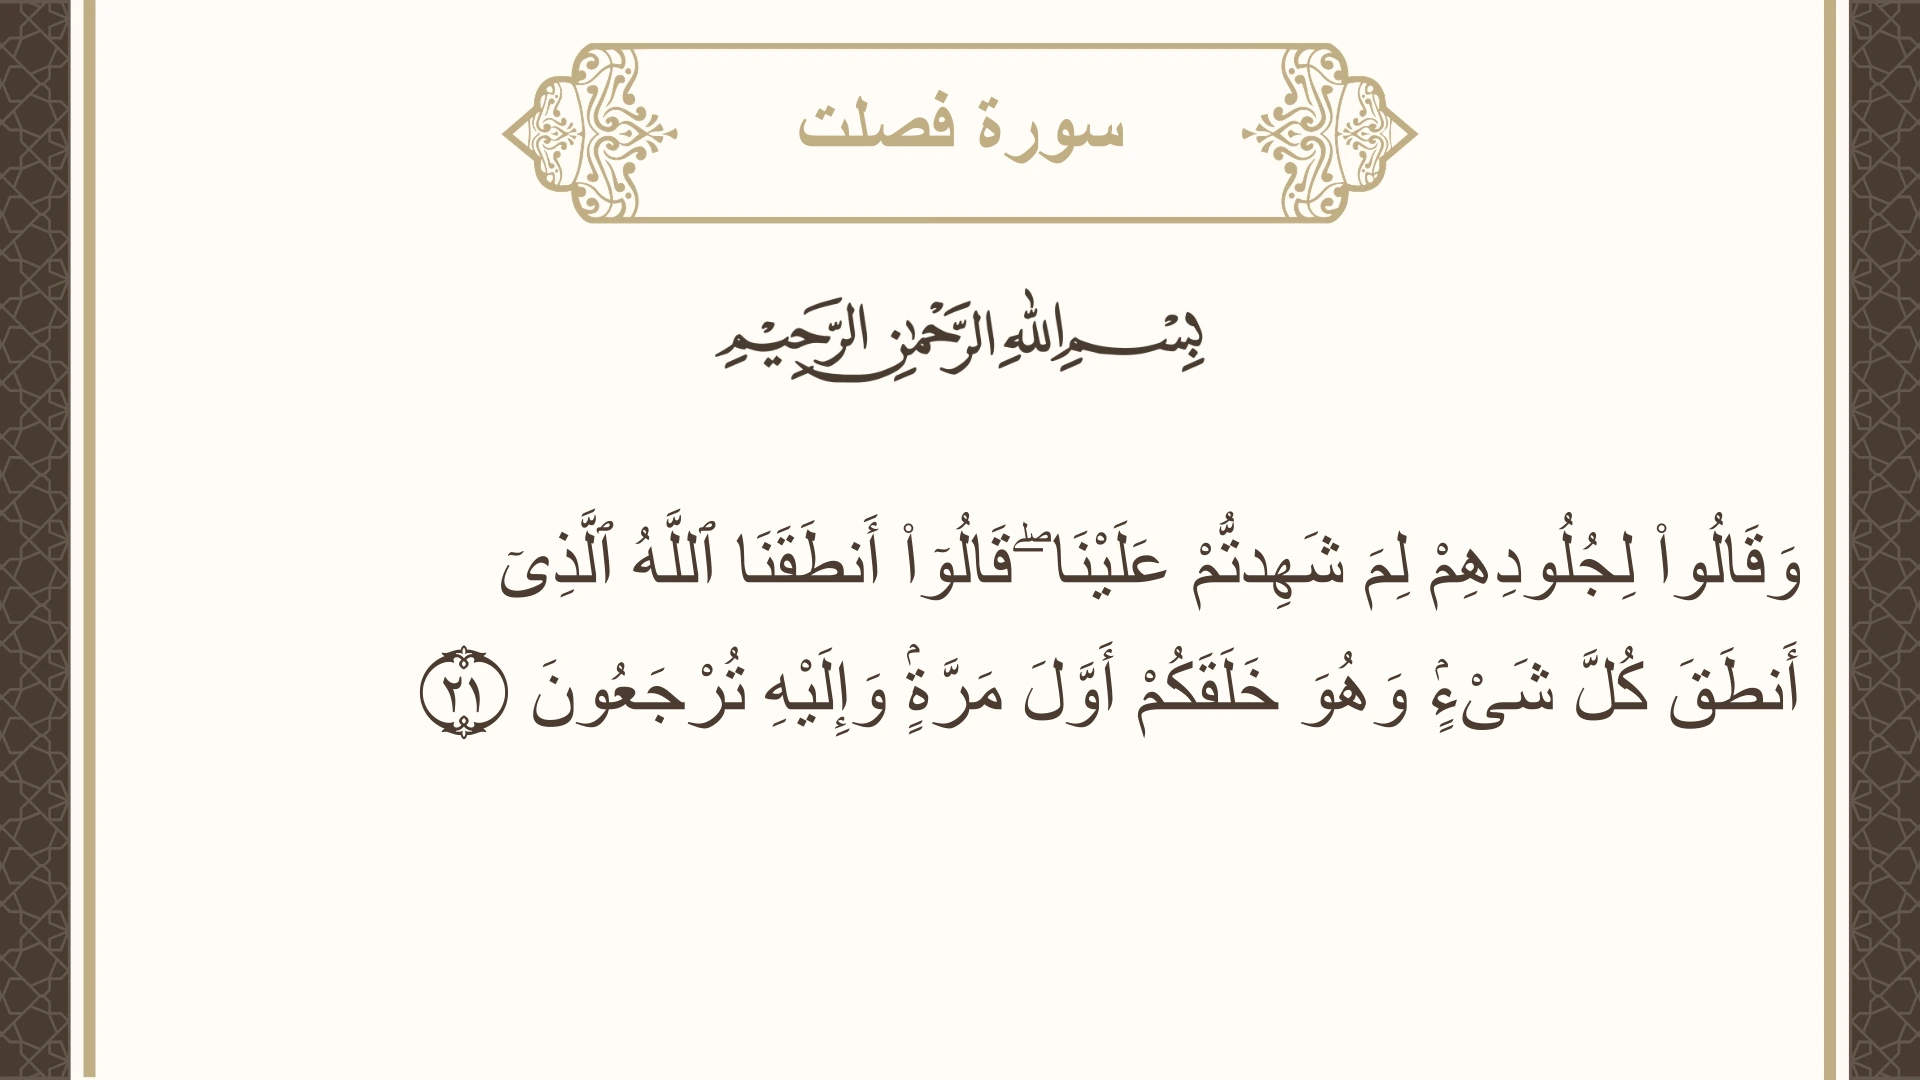 سورة فصلت
بِسْمِ اللهِ الرَّحْمٰنِ الرَّحِيْمِ
وَقَالُوا۟ لِجُلُودِهِمْ لِمَ شَهِدتُّمْ عَلَيْنَا ۖ قَالُوٓا۟ أَنطَقَنَا ٱللَّهُ ٱلَّذِىٓ
أَنطَقَ كُلَّ شَىْءٍۢ وَهُوَ خَلَقَكُمْ أَوَّلَ مَرَّةٍۢ وَإِلَيْهِ تُرْجَعُونَ ٢١